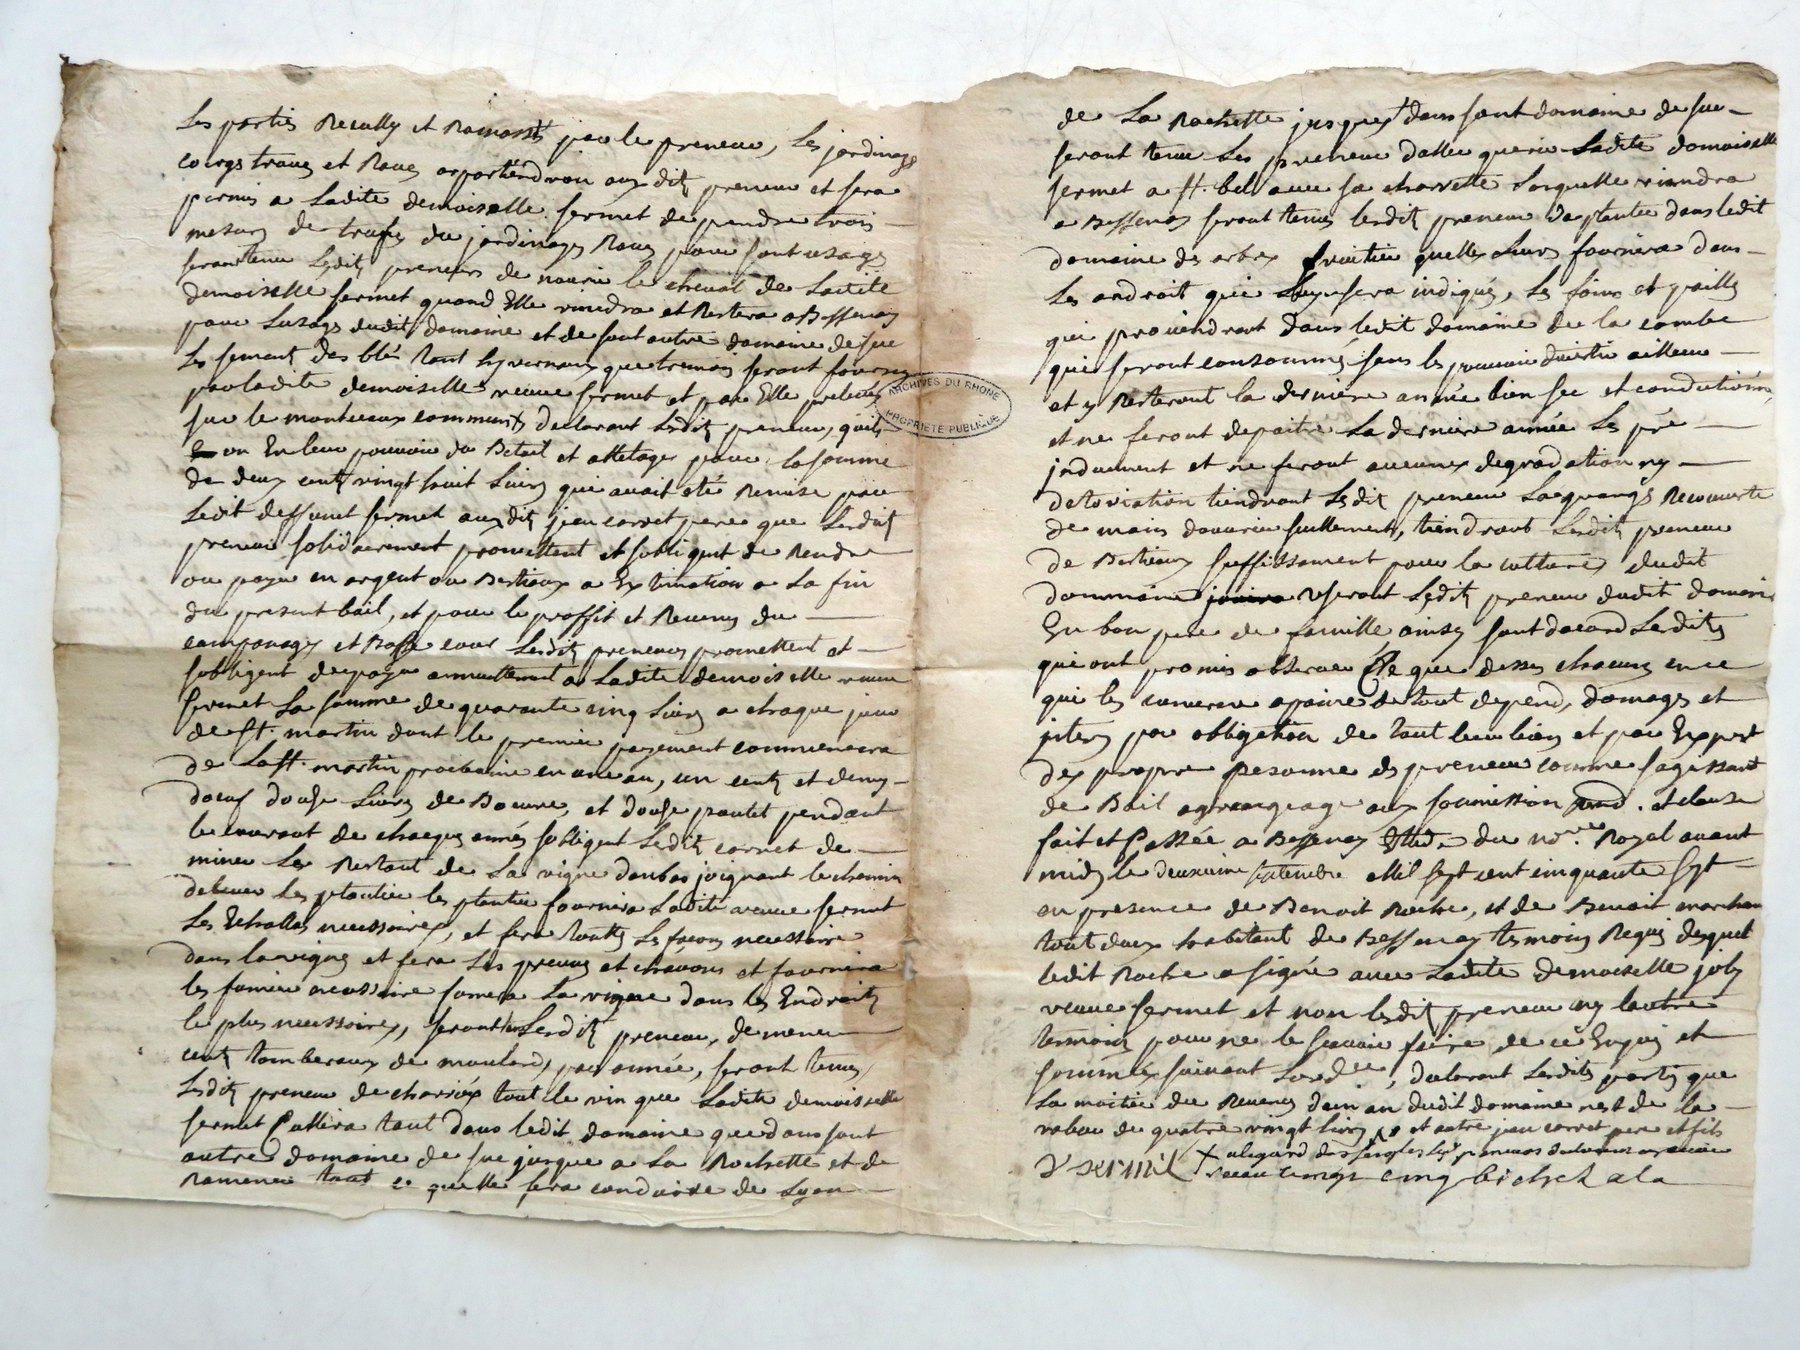 Les parties Recully et Ramassés par le preneur, Les jardinages
courges traves et Raves apartiendron aux dits preneur et sera
permis a Ladite demoiselle fermet de prendre trois
mesures de trufes du jardinages Raves pour sont usage
seront tenu Lesdits preneurs de nourir le cheval de Ladite
demoiselle fermet quand Elle viendra et Restera a Bessenay
pour Lusage dudit domaine et de sont autre domaine de sue
Les sements des blés tant hyvernaux que tremois seront fournis
par ladite demoiselle veuve fermet et par Elle prelevés
sur le monteaux commun, declarant Lesdits preneurs, quils
on En leur pouvoir du Betail et attelages pour la somme
de deux cents vingt huit Livres qui avait eté Remise par
Ledit deffunt fermet auxdits jean corret pere que Lesdits
preneur solidairement promettent et sobligent de Rendre
ou payer en argent ou Bestiaux a Extimation a La fin
du present bail, et pour le proffit et Revenus du
et Basse cour Lesdits preneurs promettent et
sobligent de payer annuellement a Ladite demoiselle veuve
fermet La somme de quarante cinq Livres a chaque jour
de St. martin dont le premier payement commencera
de La St. martin prochaine en un an, un cents et demy
doeuf douse Livres de Beurre, et douse poulet pendant
le courant de chaque année sobligent Lesdits corret de
miner Le Restant de La vigne danbas joignant le chemin
les plantier fournira Ladite veuve fermet
Les Echallas necessaires, et fera touttes Les façons necessaire
dans la vigne et fera Les preuves et chavons et fournira
les fumier necessaire fumera La vigne dans les Endroits
le plus necessaires, seront tenu Lesdits preneur, de mener
cents tomberaux de moulard, par année, seront tenus
Lesdits preneur de charrier tout le vin que Ladite demoiselle
fermet Cullira tant dans ledit domaine que dans sont
autre domaine de sue jusque a La Rochette et de
Ramener tout ce quelle fera conduire de Lyon
de La Rochette jusques dans sont domaine de sue
seront tenu Les preneur daller querir Ladite demoiselle
fermet a St. bel avec sa charrette Lorquelle viendra
a Bessenay seront tenus lesdits preneur de planter dans ledit
domaine des arbres fruitier quelles Leurs fournira dans
Les androit qui Leur sera indiqués, Les foins et pailles
qui proviendront dans ledit domaine de la combe
qui seront consommés sans les pouvoir divertir ailleur
et y Resteront la derniere année bien sec et conditionés,
et ne feront depaitre La derniere année Les pré
induement et ne feront aucunes degradation ny
deterioration tiendront Lesdits preneur La grange Recouverte
de main douvrier seullement, tiendront Lesdits preneur
de Bestiaux suffissament pour la culture dudit
dommaine useront Lesdits preneur dudit domaine
En bon pere de famille ainsy sont dacord Lesdits
qui ont promis observer Ce que dessus chacuns en ce
qui les concerne a paine de tout depend, domages et
interes par obligation de tout leur biens et par Expres
des propre pesonne des preneur comme sagissant
de Bail agrangeage aux soumission, et clause
fait et Passée a Bessenay Ettude du nore. Royal avant
midy le deuxieme septembre Mil sept cent cinquante sept
en presence de Benoit Roche, et de Benoit marchan
tout deux habitant de Bessenay temoins Requis desquel
ledit Roche a signé avec Ladite demoiselle joly
veuve fermet et non lesdits preneur ny lautre
temoins pour ne le savoir faire de ce Enquis et
sommés suivant Lordce, declarant Lesdits partis que
La moitié du Revenus dun an dudit domaine est de la
valeur de quatre vingt livres et autre jean corret pere et fils
vermil + alegard des seigles Les preneurs declarent avoir
Receu cinq bichet a la